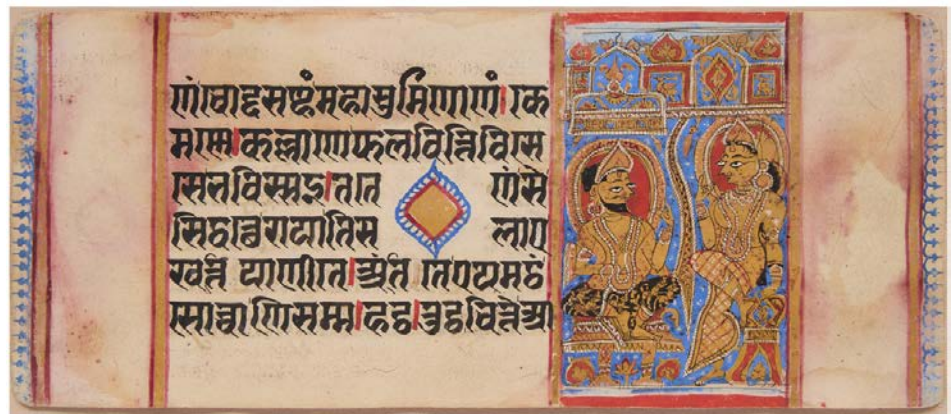 णं चोद्दसण्हं महासुमिणाणं।के
मण्णे।कल्लाणे फलवित्तिविसे
से भविस्सइ।तते णं से
सिद्धत्थे राया तिसलाए
खत्तियाणीते।अंतिते एयमट्ठं
सोच्चा णिसम्म।हट्ठ।तुट्ठचित्ते आ